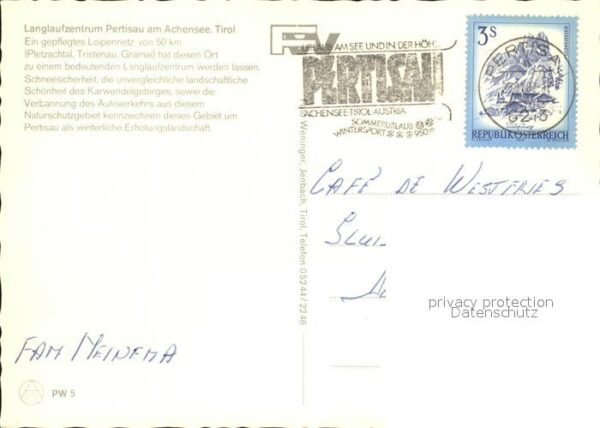 Langlaufzentrum Pertisau am Achensee, Tirol
Ein gepflegtes Loipennetz von 50 km
(Pletzachtal, Tristenau, Gramai) hat diesen Ort
zu einem bedeutenden Langlaufzentrum werden lassen.
Schneesicherheit, die unvergleichliche landschaftliche
Schönheit des Karwendelgebirges, sowie die
Verbannung des Autoverkehrs aus diesem
Naturschutzgebiet kennzeichnen dieses Gebiet um
Pertisau als winterliche Erholungslandschaft.
URLAUB AM SEE UND IN DER HÖH'
PERTISAU
ACHENSEE-TIROL-AUSTRIA
SOMMERURLAUB
WINTERSPORT 950m
3S
REPUBLIK ÖSTERREICH
PERTISAU
6213
Weninger, Jenbach, Tirol, Telefon 05244/2246
CAFÉ DE WESTFRIES
SLUI
privacy protection
Datenschutz
FAM MEINEMA
PW 5